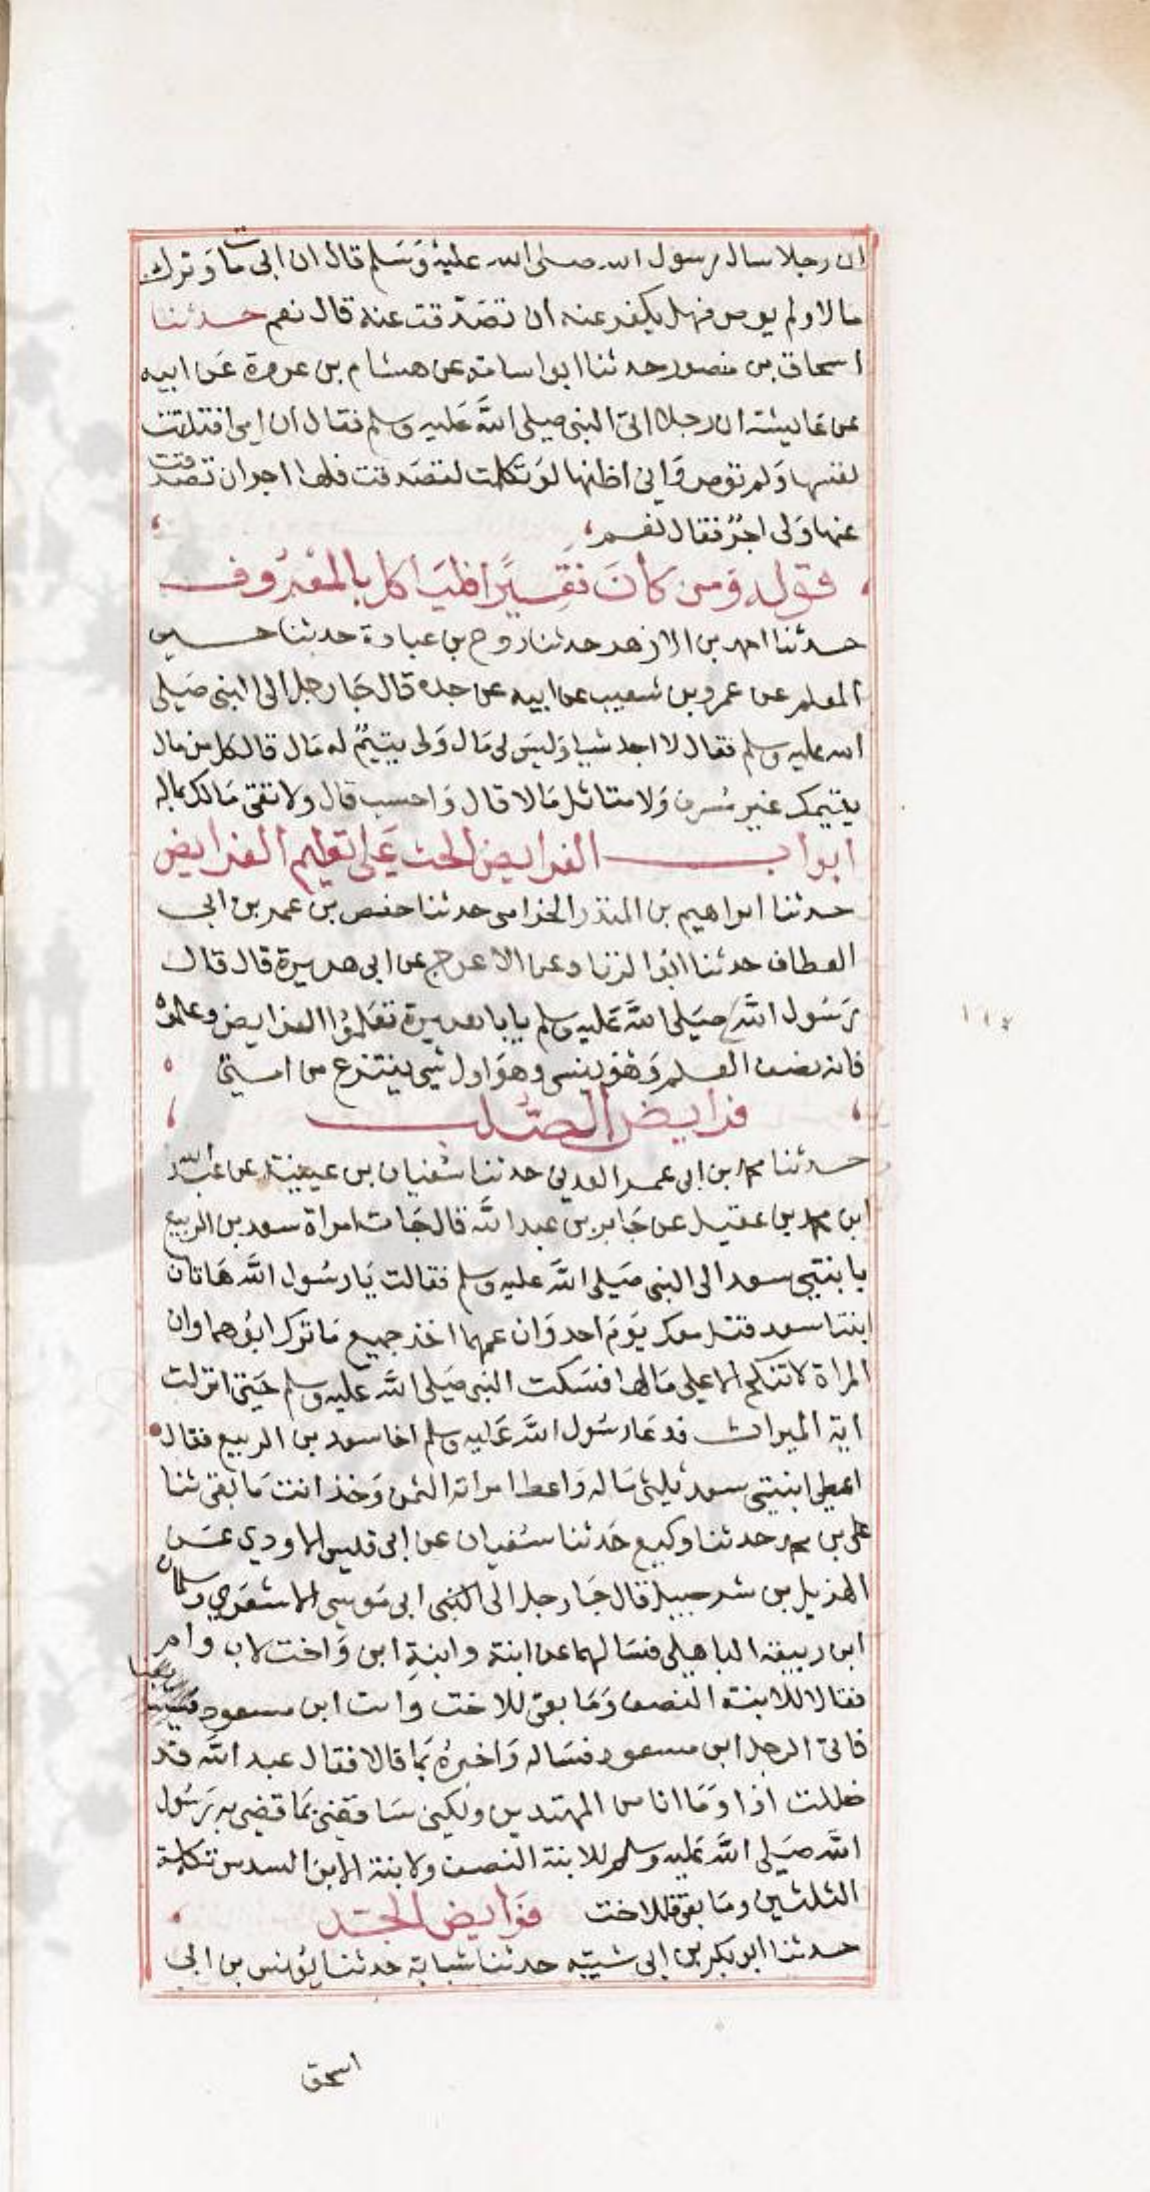 ان رجلا سال رسول الله صلى الله عليه وسلم قال ان ابى مات وترك
مالا ولم يوص فهل يكفر عنه ان تصدقت عنه قال نعم حدثنا
اسحاق بن منصور حدثنا ابو اسامة عن هشام بن عروة عن ابيه
عن عايشة ان رجلا اتى النبى صلى الله عليه وسلم فقال ان امى افتلتت
نفسها ولم توص وانى اظنها لو تكلمت لتصدقت فلها اجر ان تصدقت
عنها ولى اجر فقال نعم
قوله ومن كان فقيرا فليأكل بالمعروف
حدثنا احمد بن الازهر حدثنا روح بن عبادة حدثنا حسين
المعلم عن عمرو بن شعيب عن ابيه عن جده قال جا رجل الى النبى صلى
الله عليه وسلم فقال لا اجد شيا وليس لى مال ولى يتيم له مال قال كل من مال
يتيمك غير مسرف ولا متاثل مالا قال واحسب قال ولا تقى مالك بماله
ابواب الفرايض الحث على تعليم الفرايض
حدثنا ابراهيم بن المنذر الحزامى حدثنا حفص بن عمر بن ابى
العطاف حدثنا ابو الزناد عن الاعرج عن ابى هريرة قال قال
رسول الله صلى الله عليه وسلم يا با هريرة تعلموا الفرايض وعلموه
فانه نصف العلم وهو ينسى وهو اول شى ينتزع من امتى
فرايض الصلب
حدثنا محمد بن ابى عمر العدنى حدثنا سفيان بن عيينة عن عبد الله
ابن محمد بن عقيل عن جابر بن عبد الله قال جات امراة سعد بن الربيع
يا بنتي سعد الى النبى صلى الله عليه وسلم فقالت يا رسول الله هاتان
ابنتا سعد قتل معك يوم احد وان عمهما اخذ جميع ما ترك ابوهما وان
المراة لا تنكح الا على مالها فسكت النبى صلى الله عليه وسلم حتى انزلت
اية الميراث فدعا رسول الله عليه وسلم اخا سعد بن الربيع فقال
اعطى ابنتى سعد ثلثى ماله واعط امراته الثمن وخذ انت ما بقى ثنا
على بن محمد حدثنا وكيع حدثنا سفيان عن ابى قيس الاودي عن
الهذيل بن شرحبيل قال جا رجل الى ابى موسى الاشعري وسلمان
ابن ربيعة الباهلى فسالهما عن ابنة وابنة ابن واخت لاب وام
فقالا للابنة النصف وما بقى للاخت وات ابن مسعود
فاتى الرجل ابن مسعود فساله واخبره بما قالا فقال عبد الله قد
ضللت اذا وما انا من المهتدين ولكنى ساقضى بما قضى به رسول
الله صلى الله عليه وسلم للابنة النصف ولابنة الابن السدس تكملة
الثلثين وما بقى فللاخت فرايض الجد
حدثنا ابو بكر بن ابى شيبه حدثنا شبابة حدثنا يونس بن ابى
اسحق